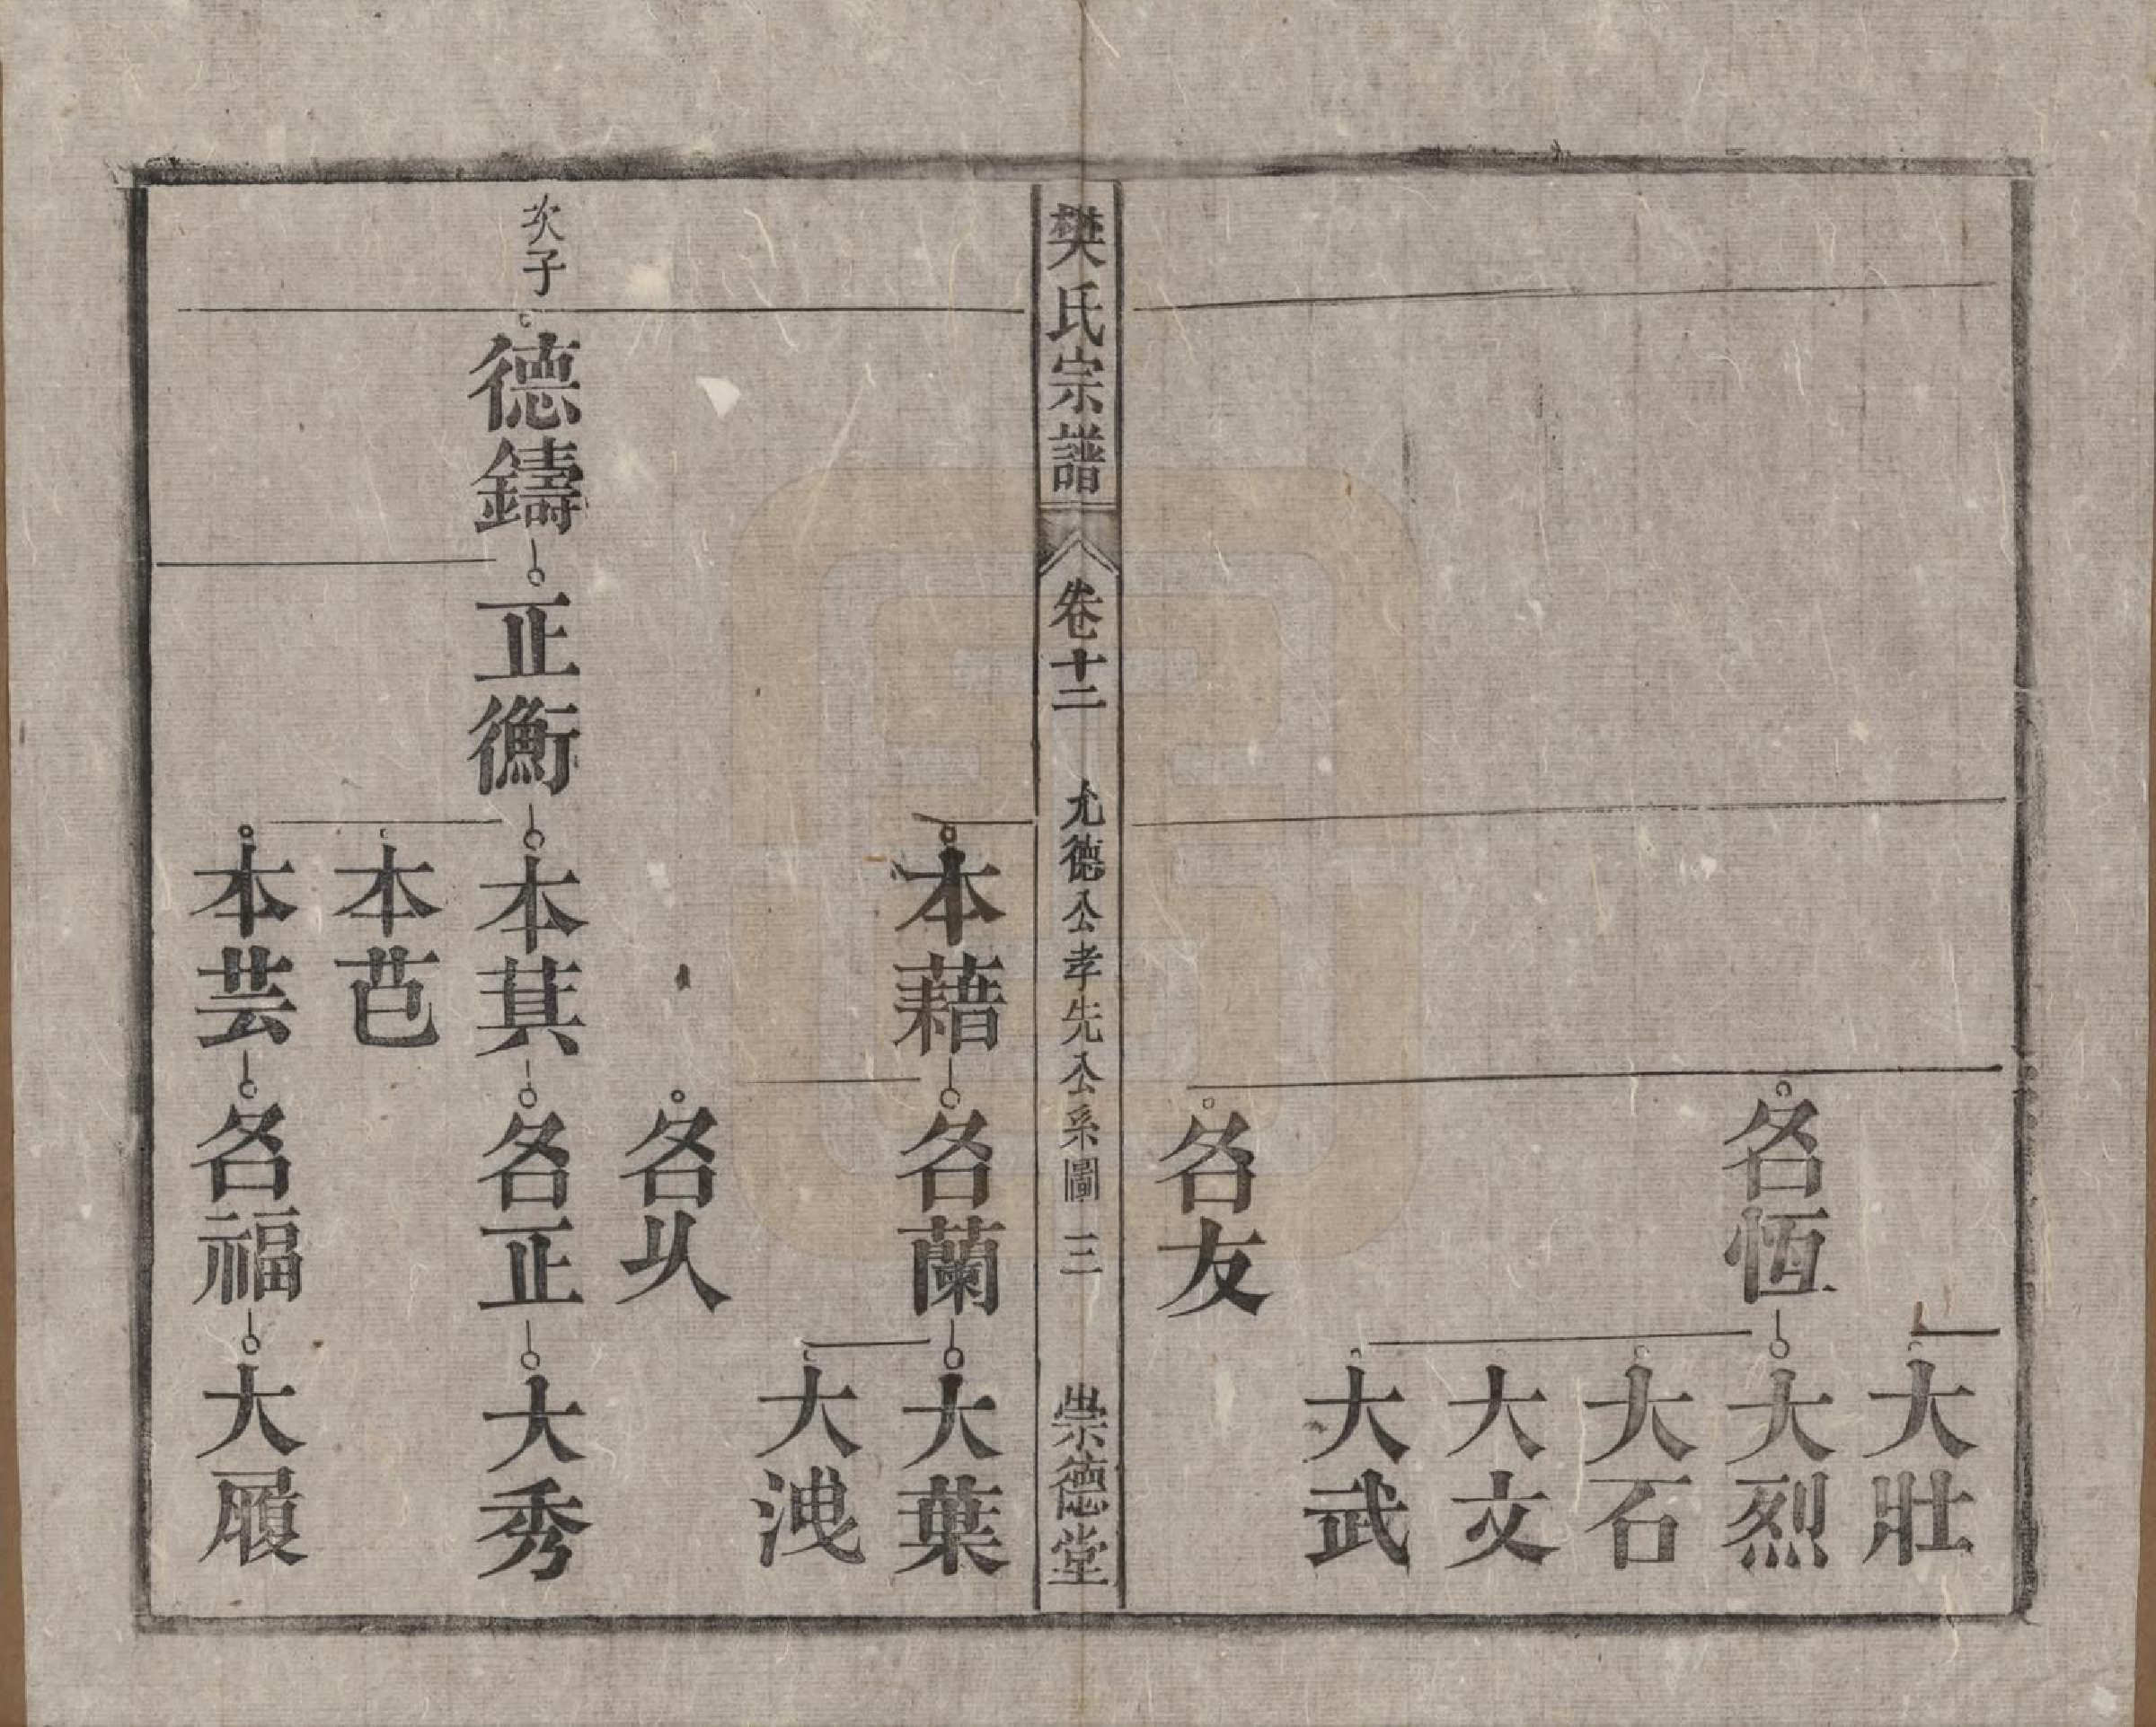 大壯
名恆
大烈
大石
大文
大武
名友
樊氏宗譜
卷十二
允德公孝先公系圖
三
崇德堂
本藉
名蘭
大葉
大洩
名㠯
次子
德鑄
正衡
本萁
名正
大秀
本芑
本芸
名福
大履